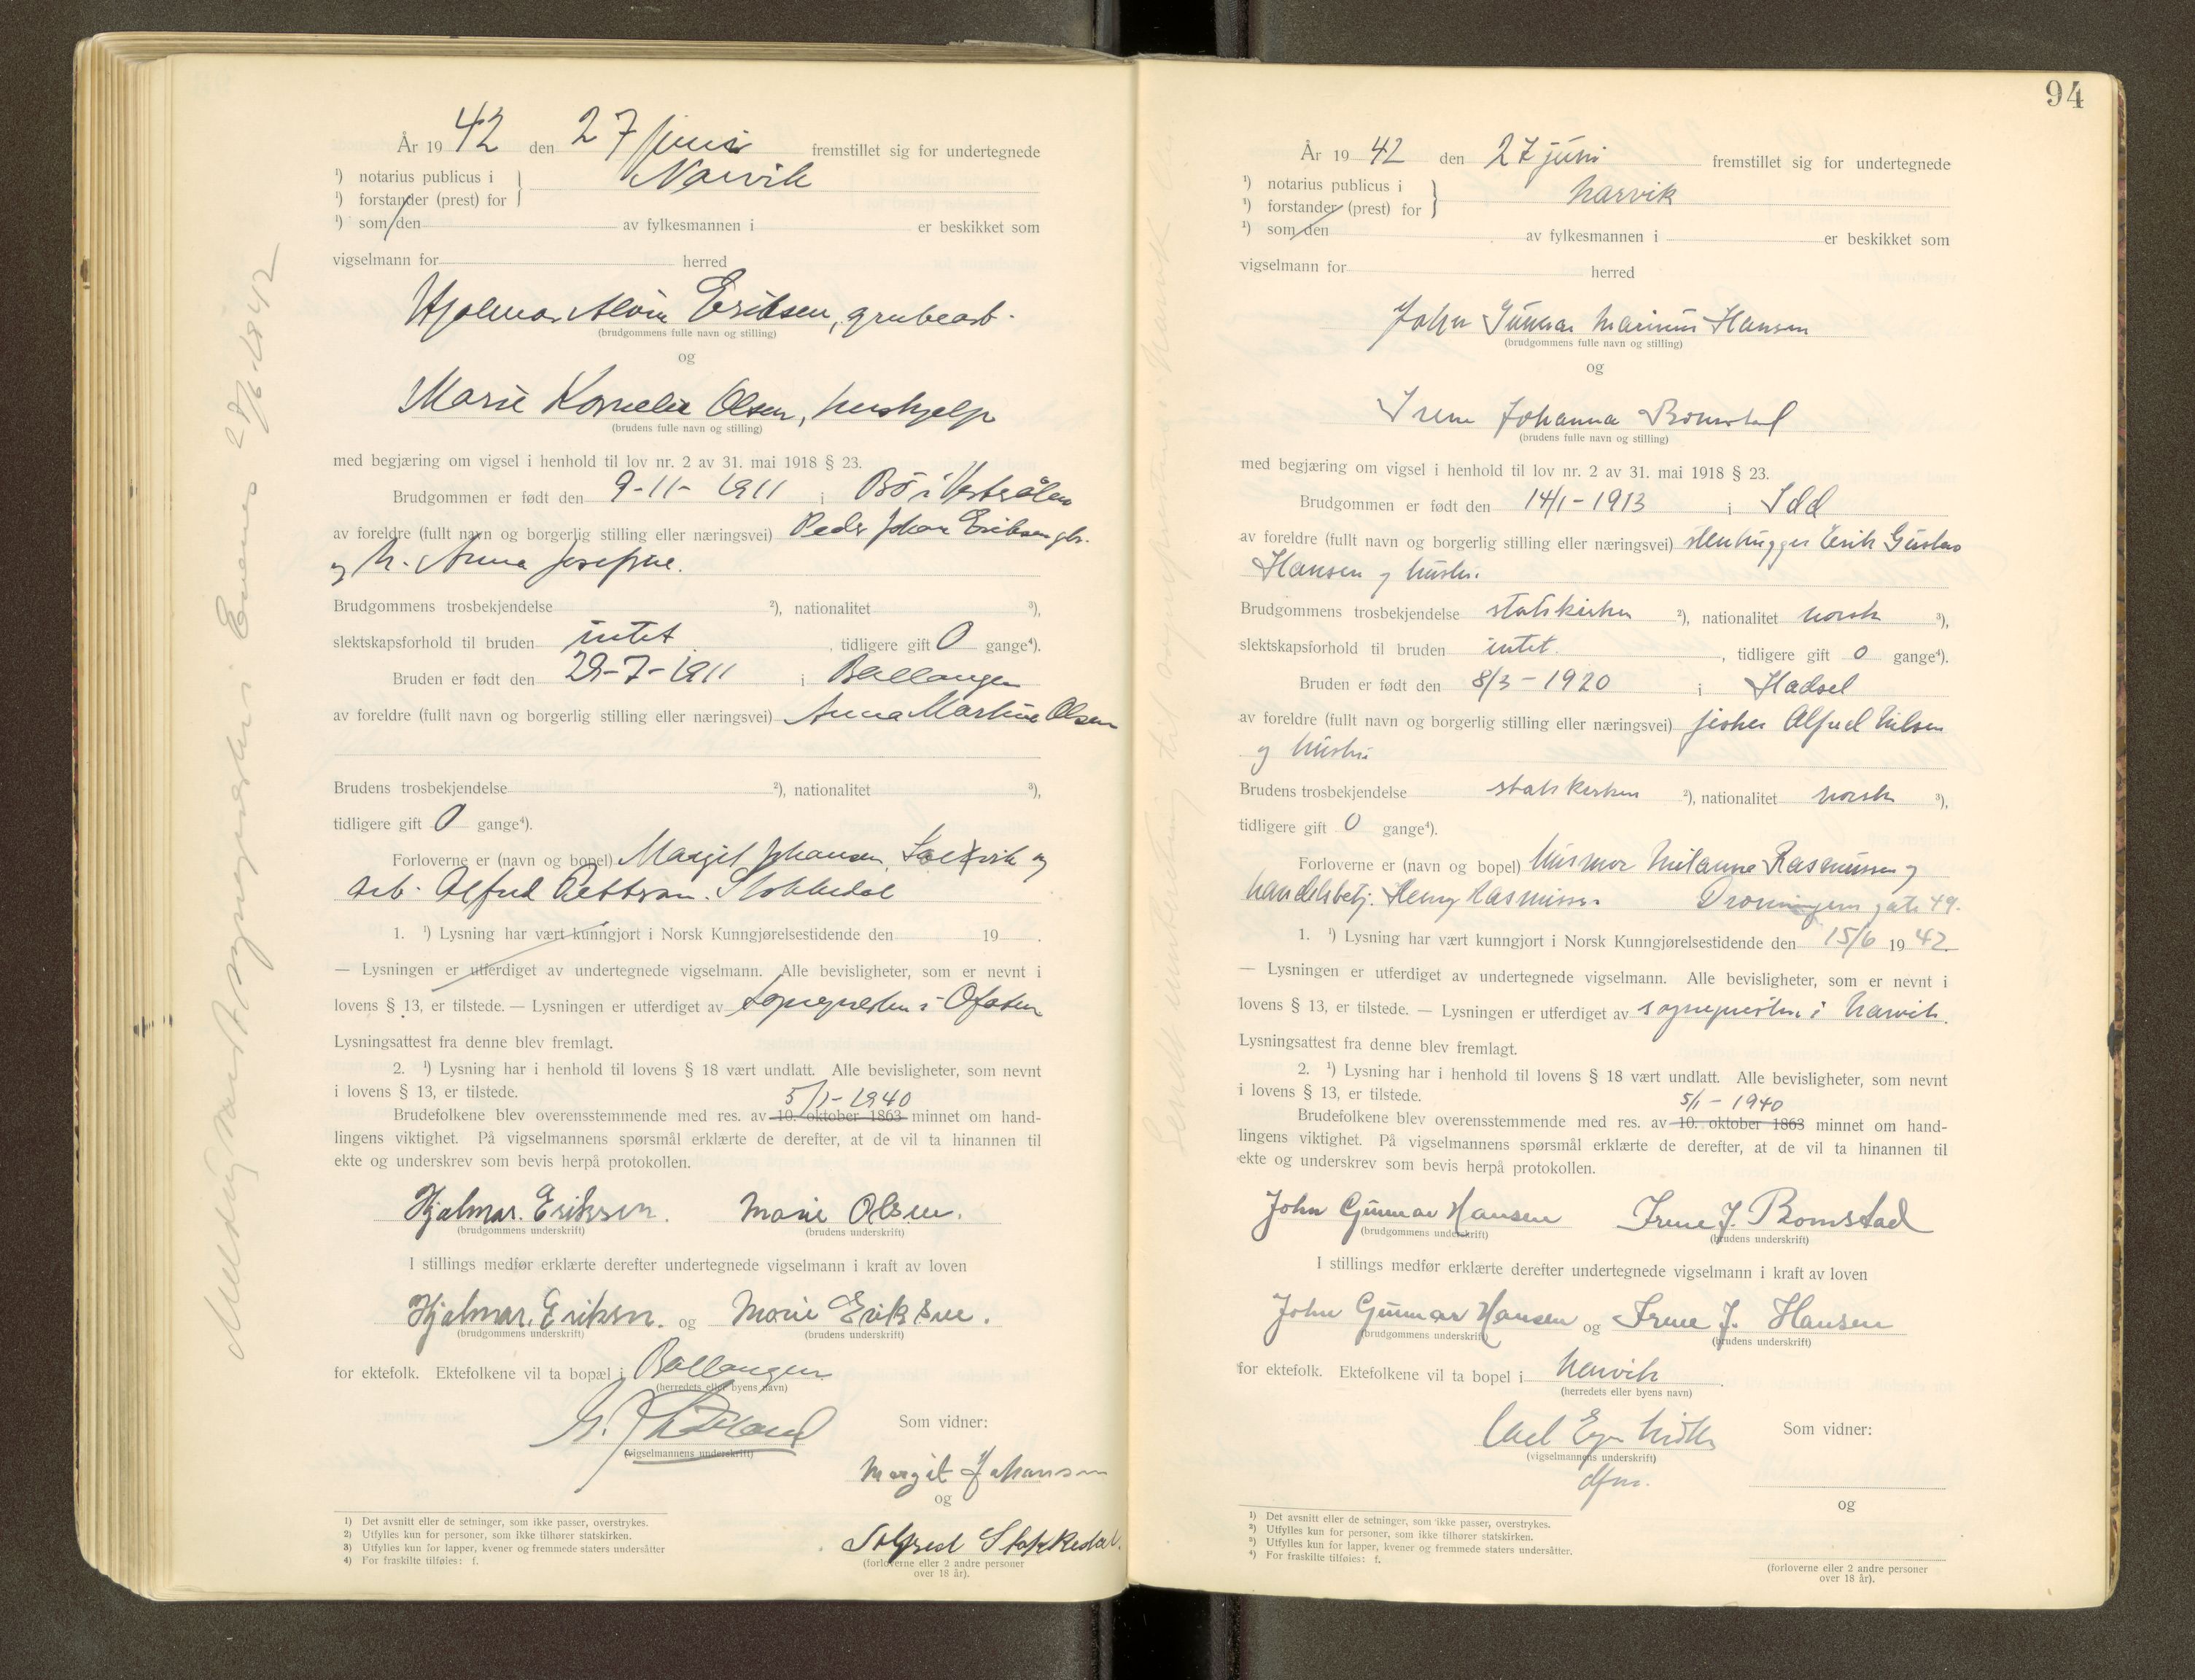 År 1942 den 27 juni fremstillet sig for undertegnede
¹) notarius publicus i
Narvik
¹) forstander (prest) for
¹) som den av fylkesmannen i er beskikket som
vigselmann for herred
Hjalmar Alvin Eriksen, grubearb.
(brudgommens fulle navn og stilling)
og
Marie Kornelie Olsen, hushjelp
(brudens fulle navn og stilling)
med begjæring om vigsel i henhold til lov nr. 2 av 31. mai 1918 § 23.
Brudgommen er født den 9-11-1911 i Bø i Vesterålen
av foreldre (fullt navn og borgerlig stilling eller næringsvei) Peder Johan Eriksen gbr.
og h. Anna Josefine.
Brudgommens trosbekjendelse ²), nationalitet ³),
slektskapsforhold til bruden intet, tidligere gift 0 gange⁴).
Bruden er født den 29-7-1911 i Ballangen
av foreldre (fullt navn og borgerlig stilling eller næringsvei) Anna Martine Olsen
Brudens trosbekjendelse ²), nationalitet ³),
tidligere gift 0 gange⁴).
Forloverne er (navn og bopel) Margit Johansen, og
arb. Alfred Pettersen. Stokkedal
1. ¹) Lysning har vært kunngjort i Norsk Kunngjørelsestidende den 19 .
— Lysningen er utferdiget av undertegnede vigselmann. Alle bevisligheter, som er nevnt i
lovens § 13, er tilstede. — Lysningen er utferdiget av sognepresten i Ofoten
Lysningsattest fra denne blev fremlagt.
2. ¹) Lysning har i henhold til lovens § 18 vært undlatt. Alle bevisligheter, som nevnt
i lovens § 13, er tilstede.
5/1-1940
Brudefolkene blev overensstemmende med res. av 10. oktober 1863 minnet om hand-
lingens viktighet. På vigselmannens spørsmål erklærte de derefter, at de vil ta hinannen til
ekte og underskrev som bevis herpå protokollen.
Hjalmar. Eriksen. Marie Olsen.
(brudgommens underskrift) (brudens underskrift)
I stillings medfør erklærte derefter undertegnede vigselmann i kraft av loven
Hjalmar. Eriksen. og Marie Eriksen.
(brudgommens underskrift) (brudens underskrift)
for ektefolk. Ektefolkene vil ta bopæl i Ballangen
(herredets eller byens navn)
Som vidner:
(vigselmannens underskrift)
Margit Johansen
og
Solfrid Stokkedal.
(forloverne eller 2 andre personer
over 18 år).
1) Det avsnitt eller de setninger, som ikke passer, overstrykes.
2) Utfylles kun for personer, som ikke tilhører statskirken.
3) Utfylles kun for lapper, kvener og fremmede staters undersåtter
4) For fraskilte tilføies: f.
Melding sendt sognepresten i Evenes 29/6-1942
94
År 1942 den 27 juni fremstillet sig for undertegnede
¹) notarius publicus i
Narvik
¹) forstander (prest) for
¹) som den av fylkesmannen i er beskikket som
vigselmann for herred
John Gunnar Marinius Hansen
(brudgommens fulle navn og stilling)
og
Irene Johanna Bomstad
(brudens fulle navn og stilling)
med begjæring om vigsel i henhold til lov nr. 2 av 31. mai 1918 § 23.
Brudgommen er født den 14/1-1913 i Idd
av foreldre (fullt navn og borgerlig stilling eller næringsvei) stenhugger Erik Gustav
Hansen og hustru
Brudgommens trosbekjendelse statskirken ²), nationalitet norsk ³),
slektskapsforhold til bruden intet., tidligere gift 0 gange⁴).
Bruden er født den 8/3-1920 i Hadsel
av foreldre (fullt navn og borgerlig stilling eller næringsvei) fisker Alfred Nilsen
og hustru
Brudens trosbekjendelse statskirken ²), nationalitet norsk ³),
tidligere gift 0 gange⁴).
Forloverne er (navn og bopel) husmor Rasmussen og
handelsbetj. Henry Rasmussen Dronningens gate 49.
1. ¹) Lysning har vært kunngjort i Norsk Kunngjørelsestidende den 15/6 1942
— Lysningen er utferdiget av undertegnede vigselmann. Alle bevisligheter, som er nevnt i
lovens § 13, er tilstede. — Lysningen er utferdiget av sognepresten i Narvik.
Lysningsattest fra denne blev fremlagt.
2. ¹) Lysning har i henhold til lovens § 18 vært undlatt. Alle bevisligheter, som nevnt
i lovens § 13, er tilstede.
5/1-1940
Brudefolkene blev overensstemmende med res. av 10. oktober 1863 minnet om hand-
lingens viktighet. På vigselmannens spørsmål erklærte de derefter, at de vil ta hinannen til
ekte og underskrev som bevis herpå protokollen.
John Gunnar Hansen Irene J. Bomstad
(brudgommens underskrift) (brudens underskrift)
I stillings medfør erklærte derefter undertegnede vigselmann i kraft av loven
John Gunnar Hansen og Irene J. Hansen
(brudgommens underskrift) (brudens underskrift)
for ektefolk. Ektefolkene vil ta bopel i Narvik
(herredets eller byens navn)
Som vidner:
(vigselmannens underskrift)
dfm.
og
(forloverne eller 2 andre personer
over 18 år).
1) Det avsnitt eller de setninger, som ikke passer, overstrykes.
2) Utfylles kun for personer, som ikke tilhører statskirken.
3) Utfylles kun for lapper, kvener og fremmede staters undersåtter.
4) For fraskilte tilføies: f.